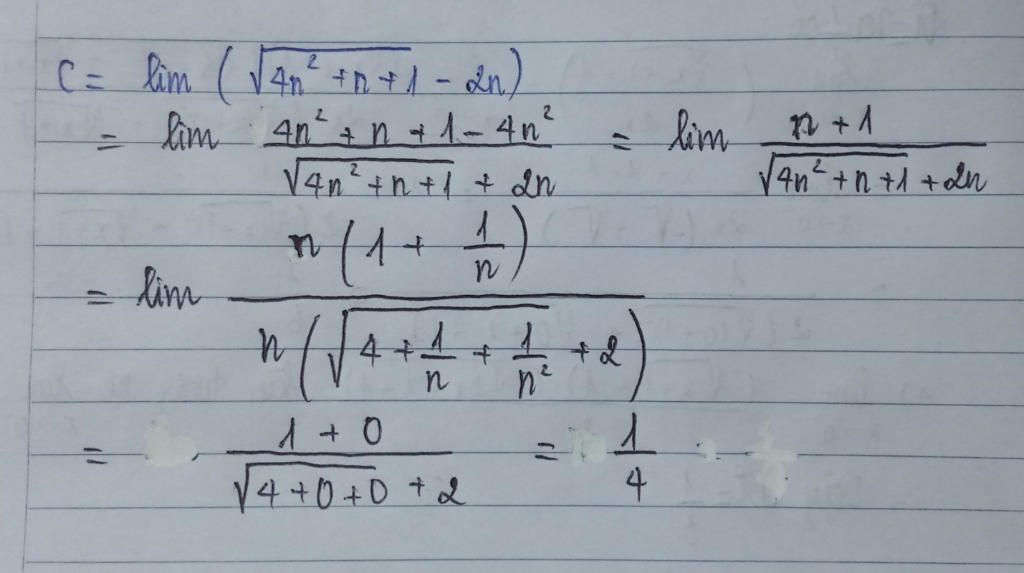 C = lim ( √(4n² + n + 1) - 2n )
= lim (4n² + n + 1 - 4n²) / (√(4n² + n + 1) + 2n) = lim (n + 1) / (√(4n² + n + 1) + 2n)
= lim n(1 + 1/n) / n(√(4 + 1/n + 1/n²) + 2)
= (1 + 0) / (√(4 + 0 + 0) + 2) = 1/4